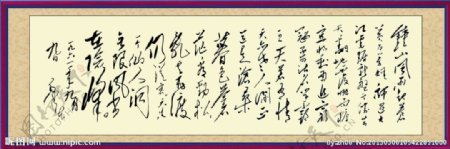 钟山风雨起苍
黄百万雄师过大
江虎踞龙盘今胜昔
天翻地覆慨而慷
宜将剩勇追穷
寇不可沽名学霸
王天若有情
天亦老人间正
道是沧桑
暮色苍
茫看劲松
乱云飞渡
仍从容天生一
个仙人洞
无限风光
在险峰
一九六一年九月
九日
昵图网 www.nipic.com